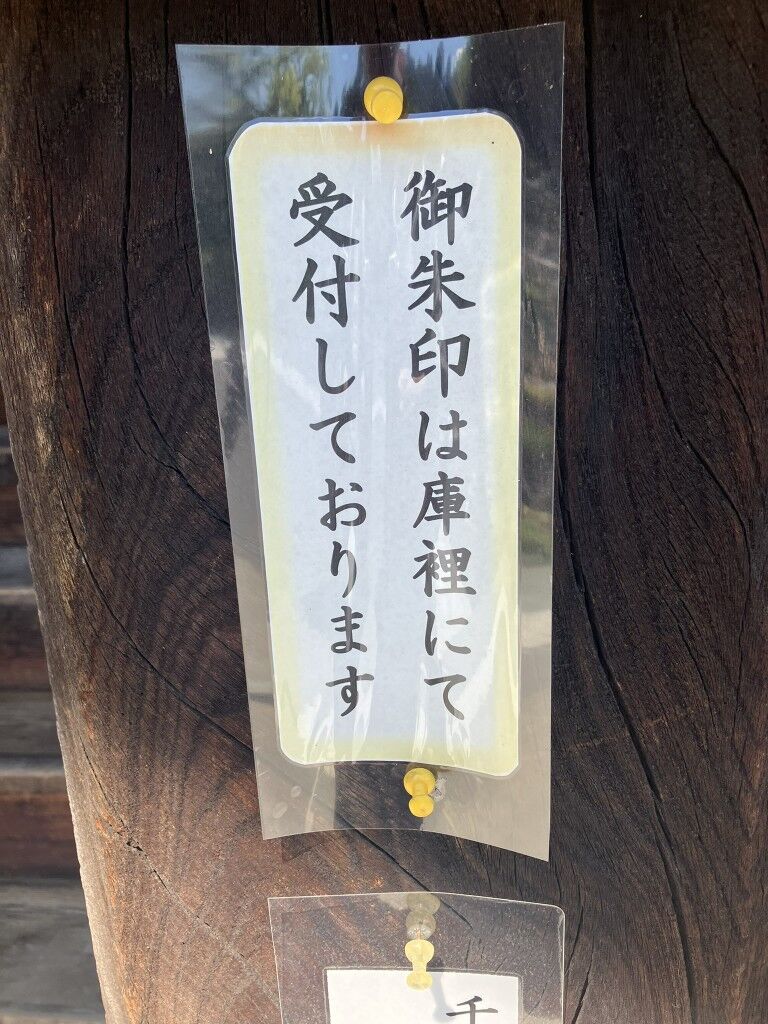 御朱印は庫裡にて
受付しております
千